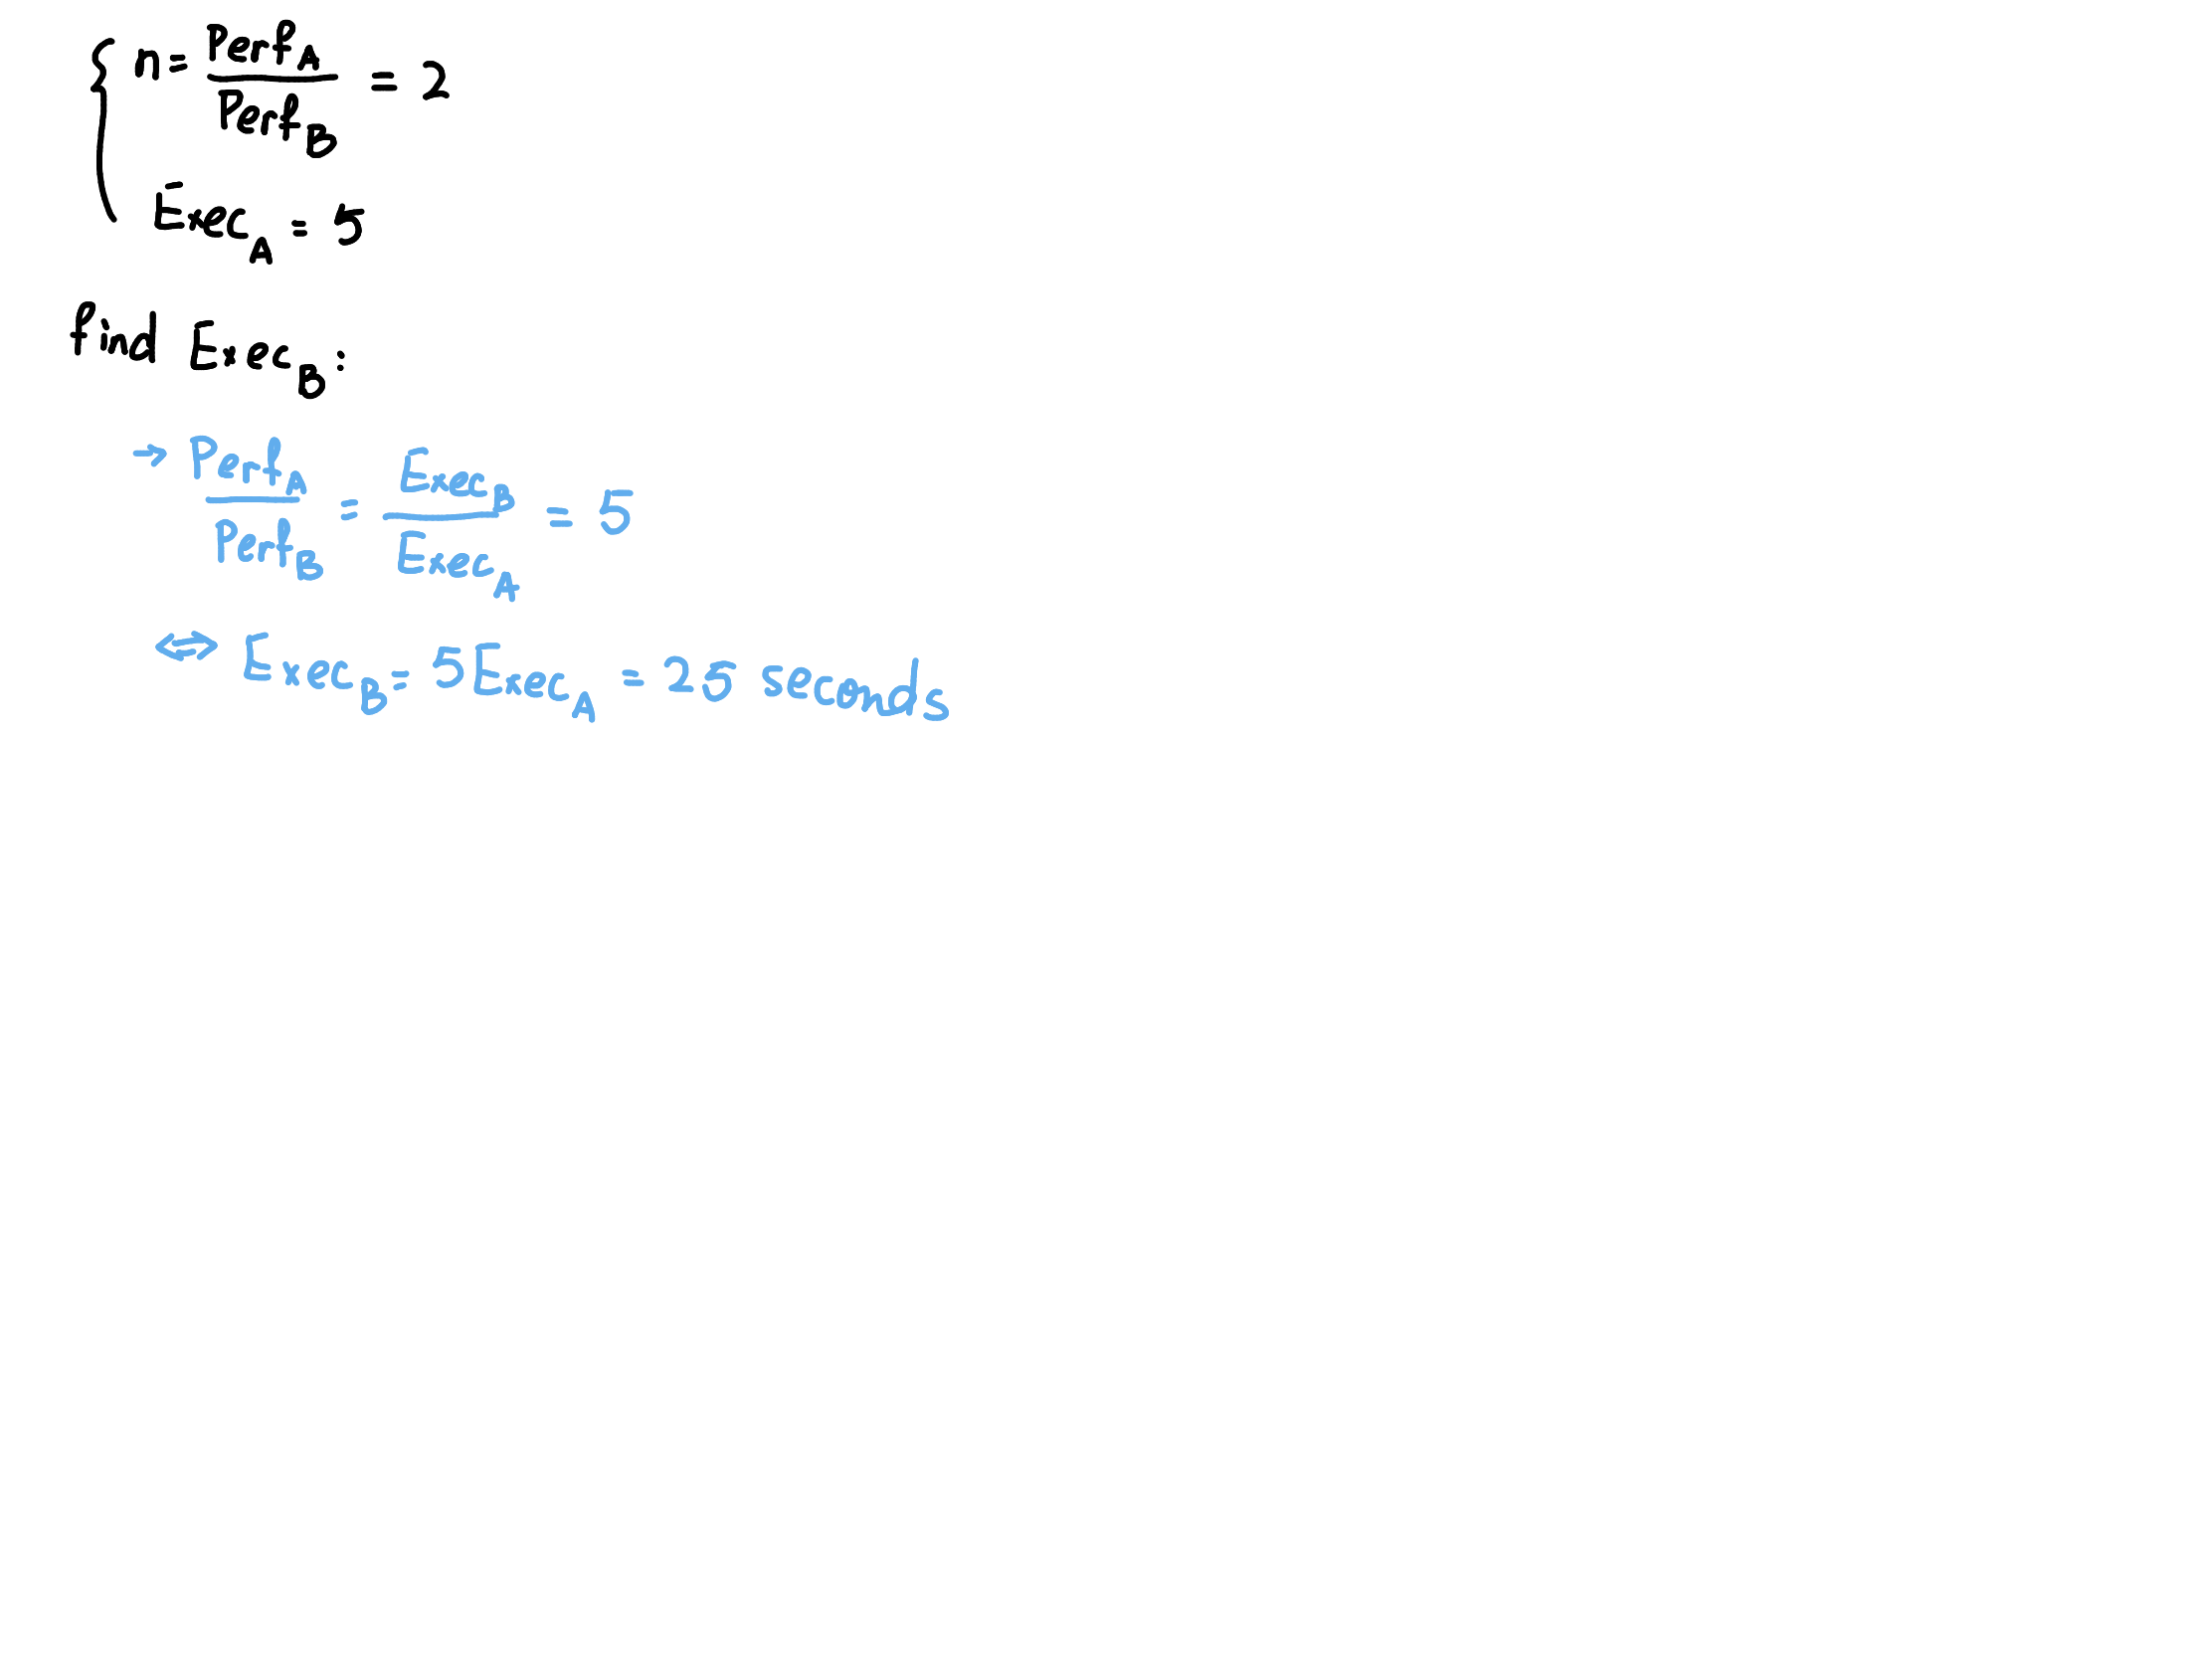 n = Perf_A / Perf_B = 2
Exec_A = 5
find Exec_B:
→ Perf_A / Perf_B = Exec_B / Exec_A = 5
⇔ Exec_B = 5 Exec_A = 25 seconds